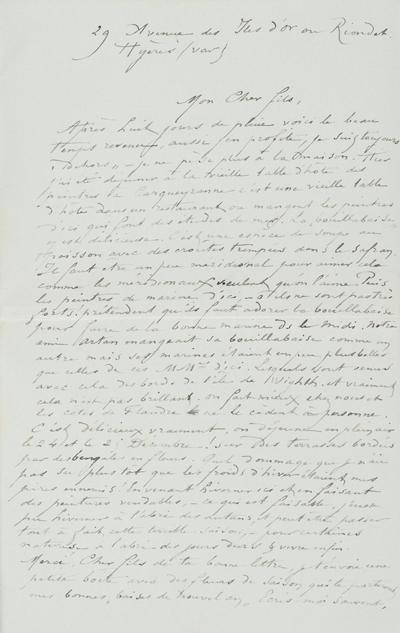 29 Avenue des Iles d'or ou Riondet
Hyères (var)
Mon Cher fils,
Après huit jours de pluie voici le beau
temps revenu, aussi j'en profite, je suis toujours
dehors, je ne pense plus à la maison. Hier
j'ai été déjeuner à la vieille table d'hôte des
peintres à Carqueyranne c'est une vieille table
d'hôte dans un restaurant où mangent les peintres
d'ici qui font des études de mer. La bouillabaisse
y est délicieuse. C'est une espèce de soupe au
poisson avec des croûtes trempées dans le safran.
Il faut être un peu méridional pour aimer cela
comme les méridionaux veulent qu'on l'aime. Puis
les peintres de marine d'ici, et ils ne sont pas très
forts, prétendent qu'ils faut adorer la bouillabaisse
pour faire de la bonne marine ds le midi. Notre
ami Artan mangeait sa bouillabaisse comme un
autre mais ses marines étaient un peu plus belles
que celles de ces MMrs d'ici. Lesquels sont venus
avec cela des bords de l'île de Wight, et vraiment
cela n'est pas brillant, on fait mieux chez nous et
les côtes de Flandre ne le cèdent à personne.
C'est délicieux vraiment, on déjeune en plein air
le 24 et le 25 Décembre! sur des terrasses bordées
par des bengales en fleurs. Quel dommage que je n'aie
pas su plus tôt que les froids d'hiver étaient mes
pires ennemis! En venant hiverner ici et en faisant
des peintures vendables, ce qui est faisable, j'eusse
pu hiverner à l'abri des autans, et peut être passer
tout à fait cette terrible saison, pour certaines
natures, à l'abri des jours durs & vivre enfin.
Merci, Cher fils de ta bonne lettre, je t'envoie une
petite boîte avec des fleurs de saison, qui te porteront
mes bonnes baises de nouvel an, Écris moi souvent,